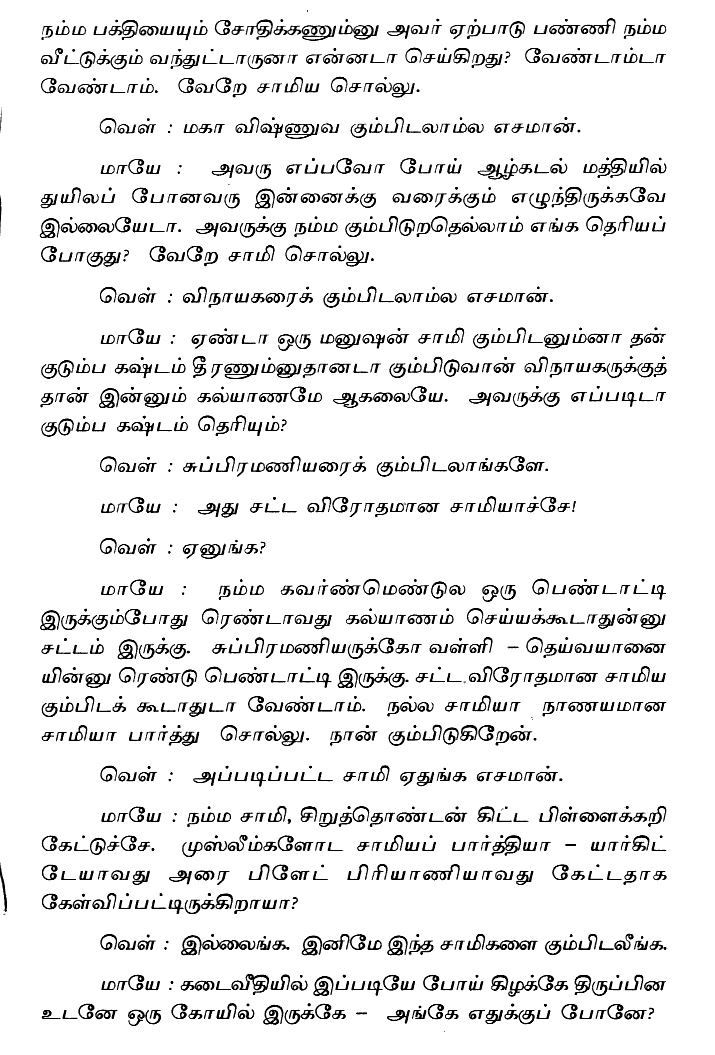 நம்ம பக்தியையும் சோதிக்கணும்னு அவர் ஏற்பாடு பண்ணி நம்ம
வீட்டுக்கும் வந்துட்டாருனா என்னடா செய்கிறது? வேண்டாம்டா
வேண்டாம். வேறே சாமிய சொல்லு.
வெள் : மகா விஷ்ணுவ கும்பிடலாம்ல எசமான்.
மாயே : அவரு எப்பவோ போய் ஆழ்கடல் மத்தியில்
துயிலப் போனவரு இன்னைக்கு வரைக்கும் எழுந்திருக்கவே
இல்லையேடா. அவருக்கு நம்ம கும்பிடுறதெல்லாம் எங்க தெரியப்
போகுது? வேறே சாமி சொல்லு.
வெள் : விநாயகரைக் கும்பிடலாம்ல எசமான்.
மாயே : ஏண்டா ஒரு மனுஷன் சாமி கும்பிடனும்னா தன்
குடும்ப கஷ்டம் தீரணும்னுதானடா கும்பிடுவான் விநாயகருக்குத்
தான் இன்னும் கல்யாணமே ஆகலையே. அவருக்கு எப்படிடா
குடும்ப கஷ்டம் தெரியும்?
வெள் : சுப்பிரமணியரைக் கும்பிடலாங்களே.
மாயே : அது சட்ட விரோதமான சாமியாச்சே!
வெள் : ஏனுங்க?
மாயே : நம்ம கவர்ண்மெண்டுல ஒரு பெண்டாட்டி
இருக்கும்போது ரெண்டாவது கல்யாணம் செய்யக்கூடாதுன்னு
சட்டம் இருக்கு. சுப்பிரமணியருக்கோ வள்ளி – தெய்வயானை
யின்னு ரெண்டு பெண்டாட்டி இருக்கு. சட்ட விரோதமான சாமிய
கும்பிடக் கூடாதுடா வேண்டாம். நல்ல சாமியா நாணயமான
சாமியா பார்த்து சொல்லு. நான் கும்பிடுகிறேன்.
வெள் : அப்படிப்பட்ட சாமி ஏதுங்க எசமான்.
மாயே : நம்ம சாமி, சிறுத்தொண்டன் கிட்ட பிள்ளைக்கறி
கேட்டுச்சே. முஸ்லீம்களோட சாமியப் பார்த்தியா – யார்கிட்
டேயாவது அரை பிளேட் பிரியாணியாவது கேட்டதாக
கேள்விப்பட்டிருக்கிறாயா?
வெள் : இல்லைங்க. இனிமே இந்த சாமிகளை கும்பிடலீங்க.
மாயே : கடைவீதியில் இப்படியே போய் கிழக்கே திருப்பின
உடனே ஒரு கோயில் இருக்கே – அங்கே எதுக்குப் போனே?